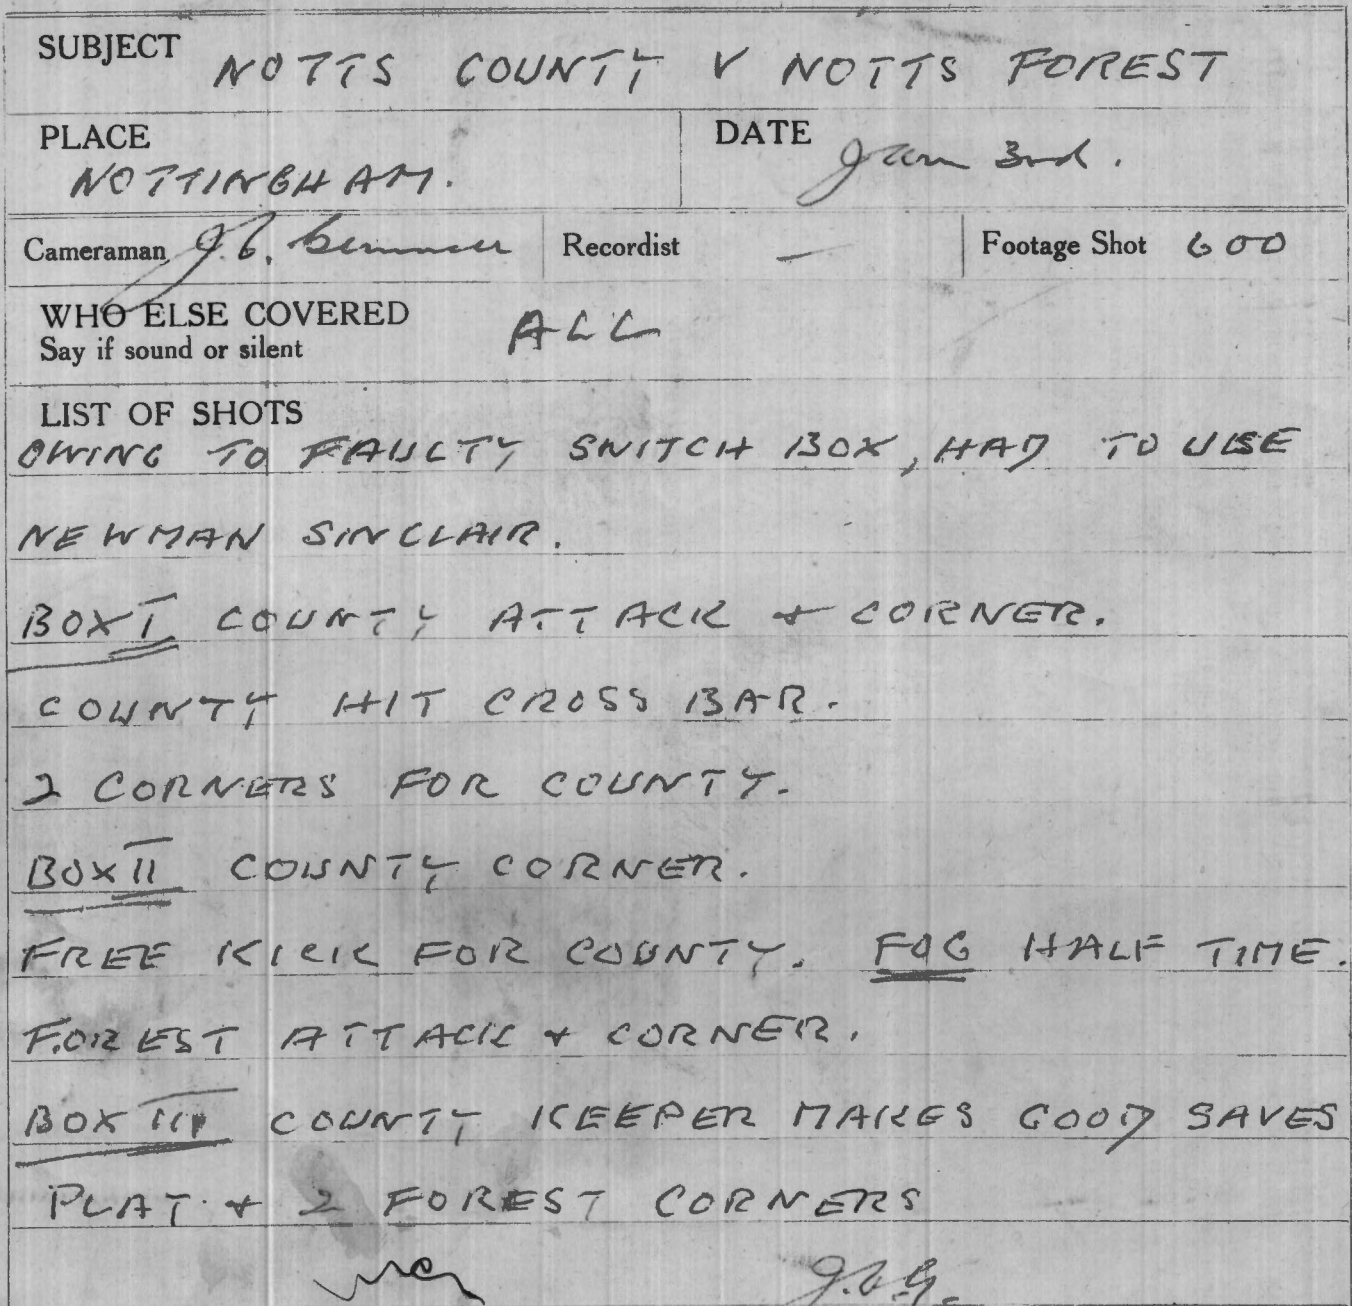 SUBJECT NOTTS COUNTY V NOTTS FOREST
PLACE
NOTTINGHAM.
DATE Jan 3rd.
Cameraman J.C. Gemmell
Recordist —
Footage Shot 600
WHO ELSE COVERED
Say if sound or silent
ALL
LIST OF SHOTS
OWING TO FAULTY SWITCH BOX, HAD TO USE
NEWMAN SINCLAIR.
BOX I COUNTY ATTACK + CORNER.
COUNTY HIT CROSS BAR.
2 CORNERS FOR COUNTY.
BOX II COUNTY CORNER.
FREE KICK FOR COUNTY. FOG HALF TIME.
FOREST ATTACK + CORNER.
BOX III COUNTY KEEPER MAKES GOOD SAVES
PLAY + 2 FOREST CORNERS